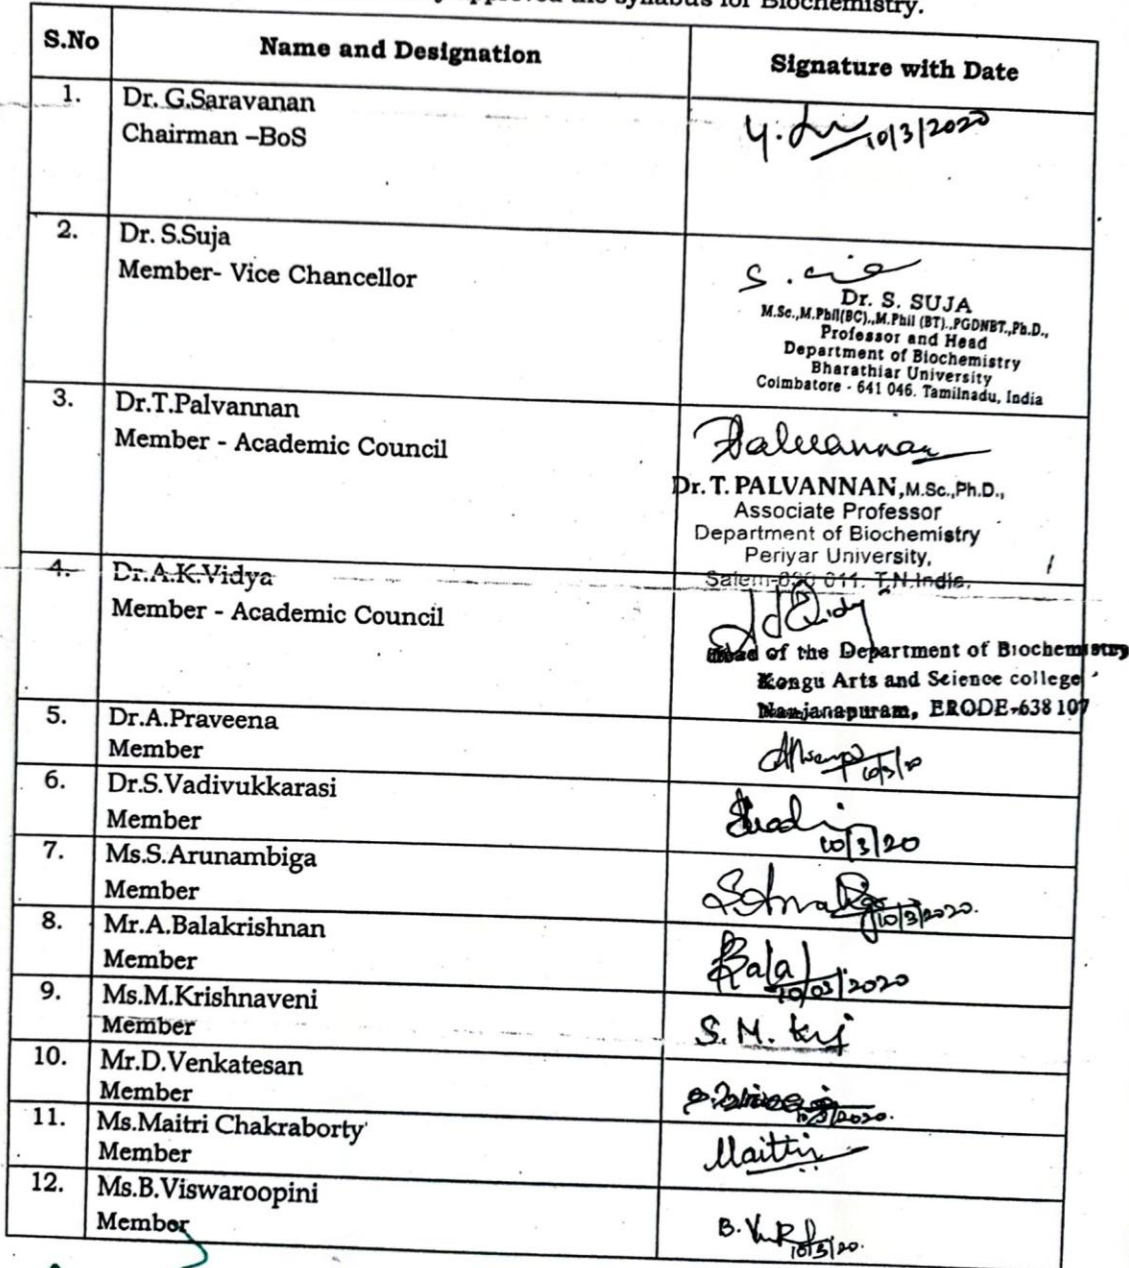 approved the syllabus for Biochemistry.
S.No Name and Designation Signature with Date
1. Dr. G.Saravanan
Chairman –BoS
10/3/2020
2. Dr. S.Suja
Member- Vice Chancellor
Dr. S. SUJA
M.Sc.,M.Phil(BC).,M.Phil (BT).,PGDNBT.,Ph.D.,
Professor and Head
Department of Biochemistry
Bharathiar University
Coimbatore - 641 046. Tamilnadu, India
3. Dr.T.Palvannan
Member - Academic Council
Palvannan
Dr. T. PALVANNAN,M.Sc.,Ph.D.,
Associate Professor
Department of Biochemistry
Periyar University,
Salem-636 011. T.N.India.
4. Dr.A.K.Vidya
Member - Academic Council
Head of the Department of Biochemistry
Kongu Arts and Science college
Nanjanapuram, ERODE-638 107
5. Dr.A.Praveena
Member
10/3/20
6. Dr.S.Vadivukkarasi
Member
10/3/20
7. Ms.S.Arunambiga
Member
10/3/2020.
8. Mr.A.Balakrishnan
Member
Bala
10/03/2020
9. Ms.M.Krishnaveni
Member
S. M. Krj
10. Mr.D.Venkatesan
Member
10/3/2020.
11. Ms.Maitri Chakraborty
Member
Maitri
12. Ms.B.Viswaroopini
Member
B.
10/3/20.